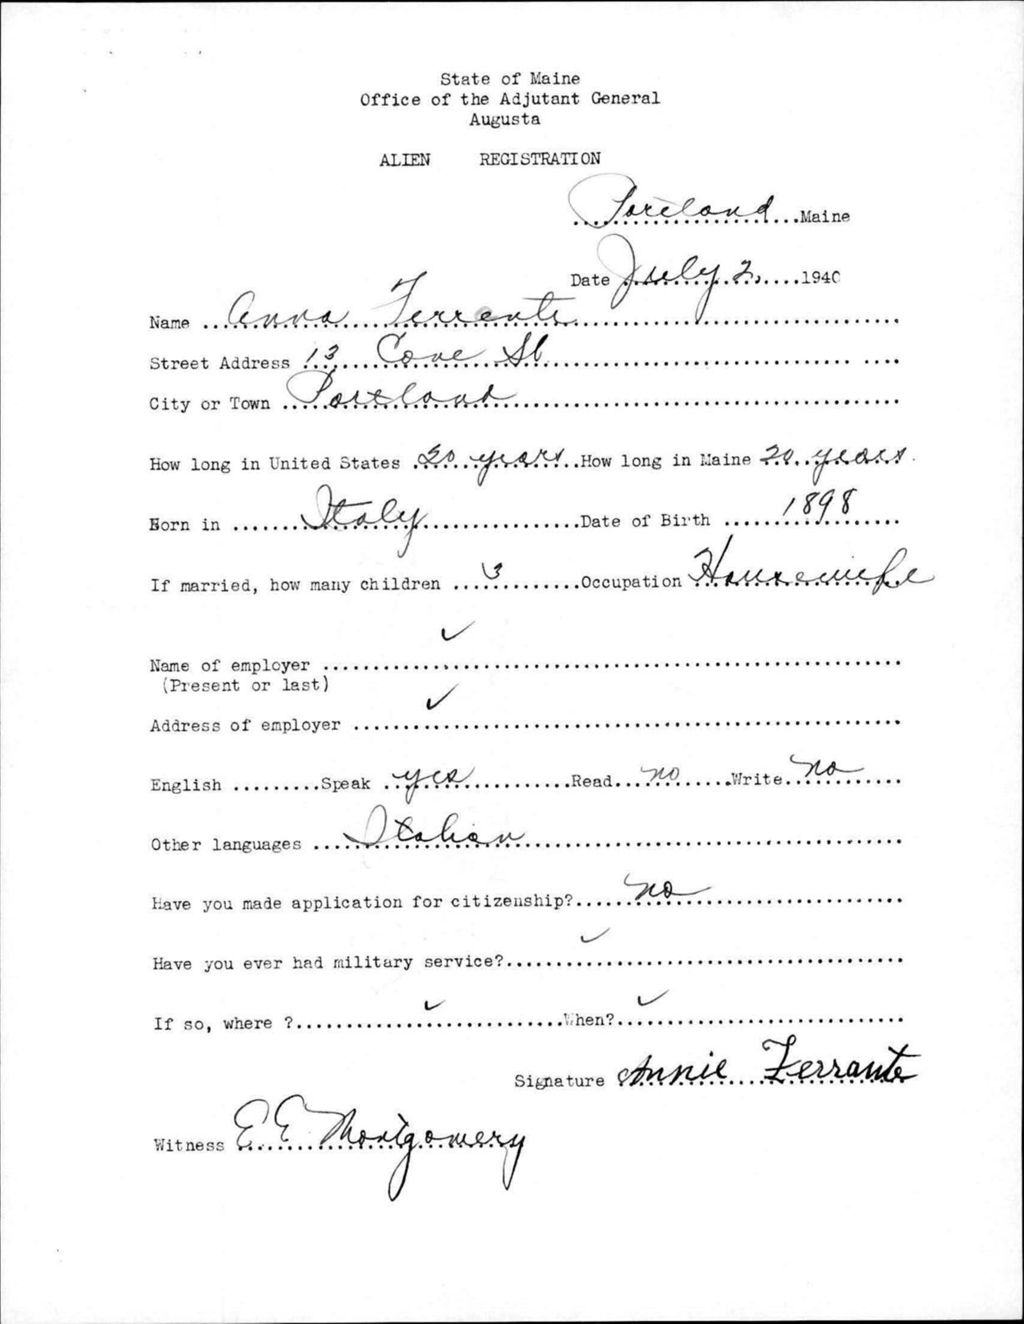 State of Maine
Office of the Adjutant General
Augusta
ALIEN REGISTRATION
Portland Maine
Date July 2, 1940
Name Anna Ferrante
Street Address 13 Cove St
City or Town Portland
How long in United States 20 years How long in Maine 20 years
Born in Italy Date of Birth 1898
If married, how many children 3 Occupation Housewife
✓
Name of employer
(Present or last)
✓
Address of employer
English Speak yes Read no Write no
Other languages Italian
Have you made application for citizenship? no
Have you ever had military service? ✓
If so, where ? ✓ When? ✓
Signature Annie Ferrante
Witness E E Montgomery